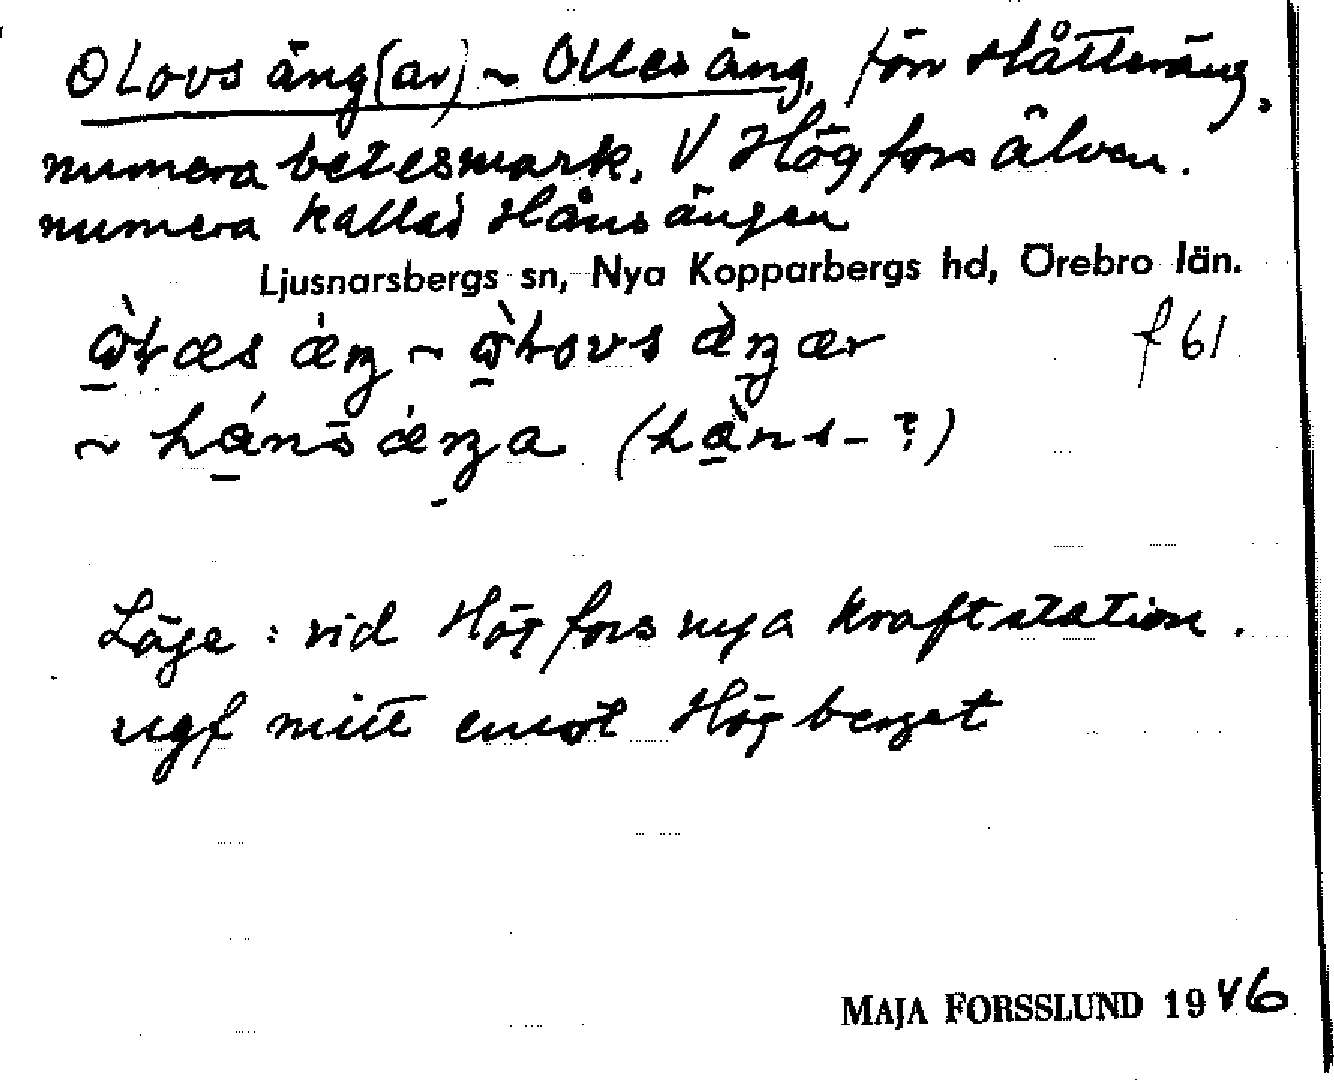 Olovs äng(ar) ~ Olles äng, förr slåtteräng,
numera betesmark. V Högforsälven.
numera kallad Hånsängen
Ljusnarsbergs sn, Nya Kopparbergs hd, Örebro län.
f 61
Läge: vid Högfors nya kraftstation.
ugf mitt emot Högberget
MAJA FORSSLUND 1946